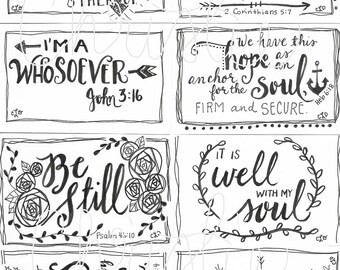 2 Corinthians 5:7
I'M A
WHOSOEVER
John 3:16
We have this
hope as
an
anchor for
the Soul,
FIRM and SECURE.
Heb 6:18
Be
Still
Psalm 46:10
IT IS
well
WITH MY
soul